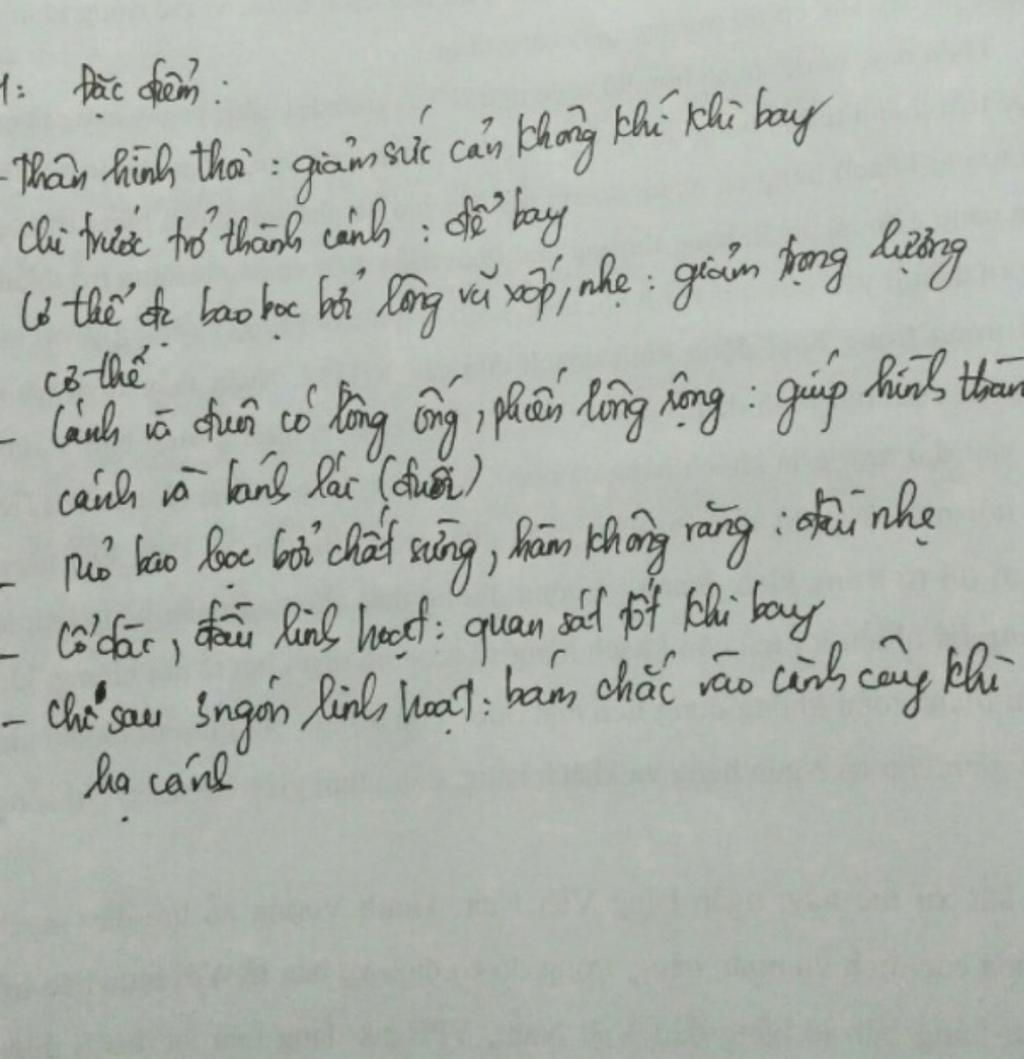 1: Đặc điểm:
- Thân hình thoi: giảm sức cản không khí khi bay
Chi trước trở thành cánh: để bay
Cơ thể đc bao bọc bởi lông vũ xốp, nhẹ: giảm trọng lượng
cơ thể
- Cánh và đuôi có lông ống, phiến lông rộng: giúp hình thàn
cánh và bánh lái (đuôi)
- Mỏ bao bọc bởi chất sừng, hàm không răng: đầu nhẹ
- Cổ dài, đầu linh hoạt: quan sát tốt khi bay
- Chi sau 3 ngón linh hoạt: bám chắc vào cành cây khi
hạ cánh